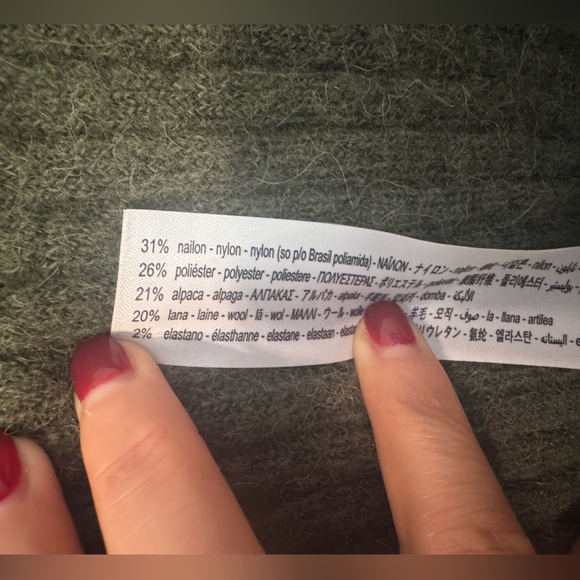 31% nailon - nylon - nylon (so p/o Brasil poliamida) - ΝΑΪΛΟΝ - ナイロン - nailon
26% poliéster - polyester - poliestere - ΠΟΛΥΕΣΤΕΡΑΣ - ポリエステル - poliester - 聚酯纤维 - 폴리에스터 -
21% alpaca - alpaga - ΑΛΠΑΚΑΣ - アルパカ - alpaka - domba - الألبكة
20% lana - laine - wool - lã - wol - ΜΑΛΛΙ - ウール - 羊毛 - 모직 - صوف - la - llana - artilea
2% elastano - élasthanne - elastane - elastaan - リウレタン - 氨纶 - 엘라스탄 -